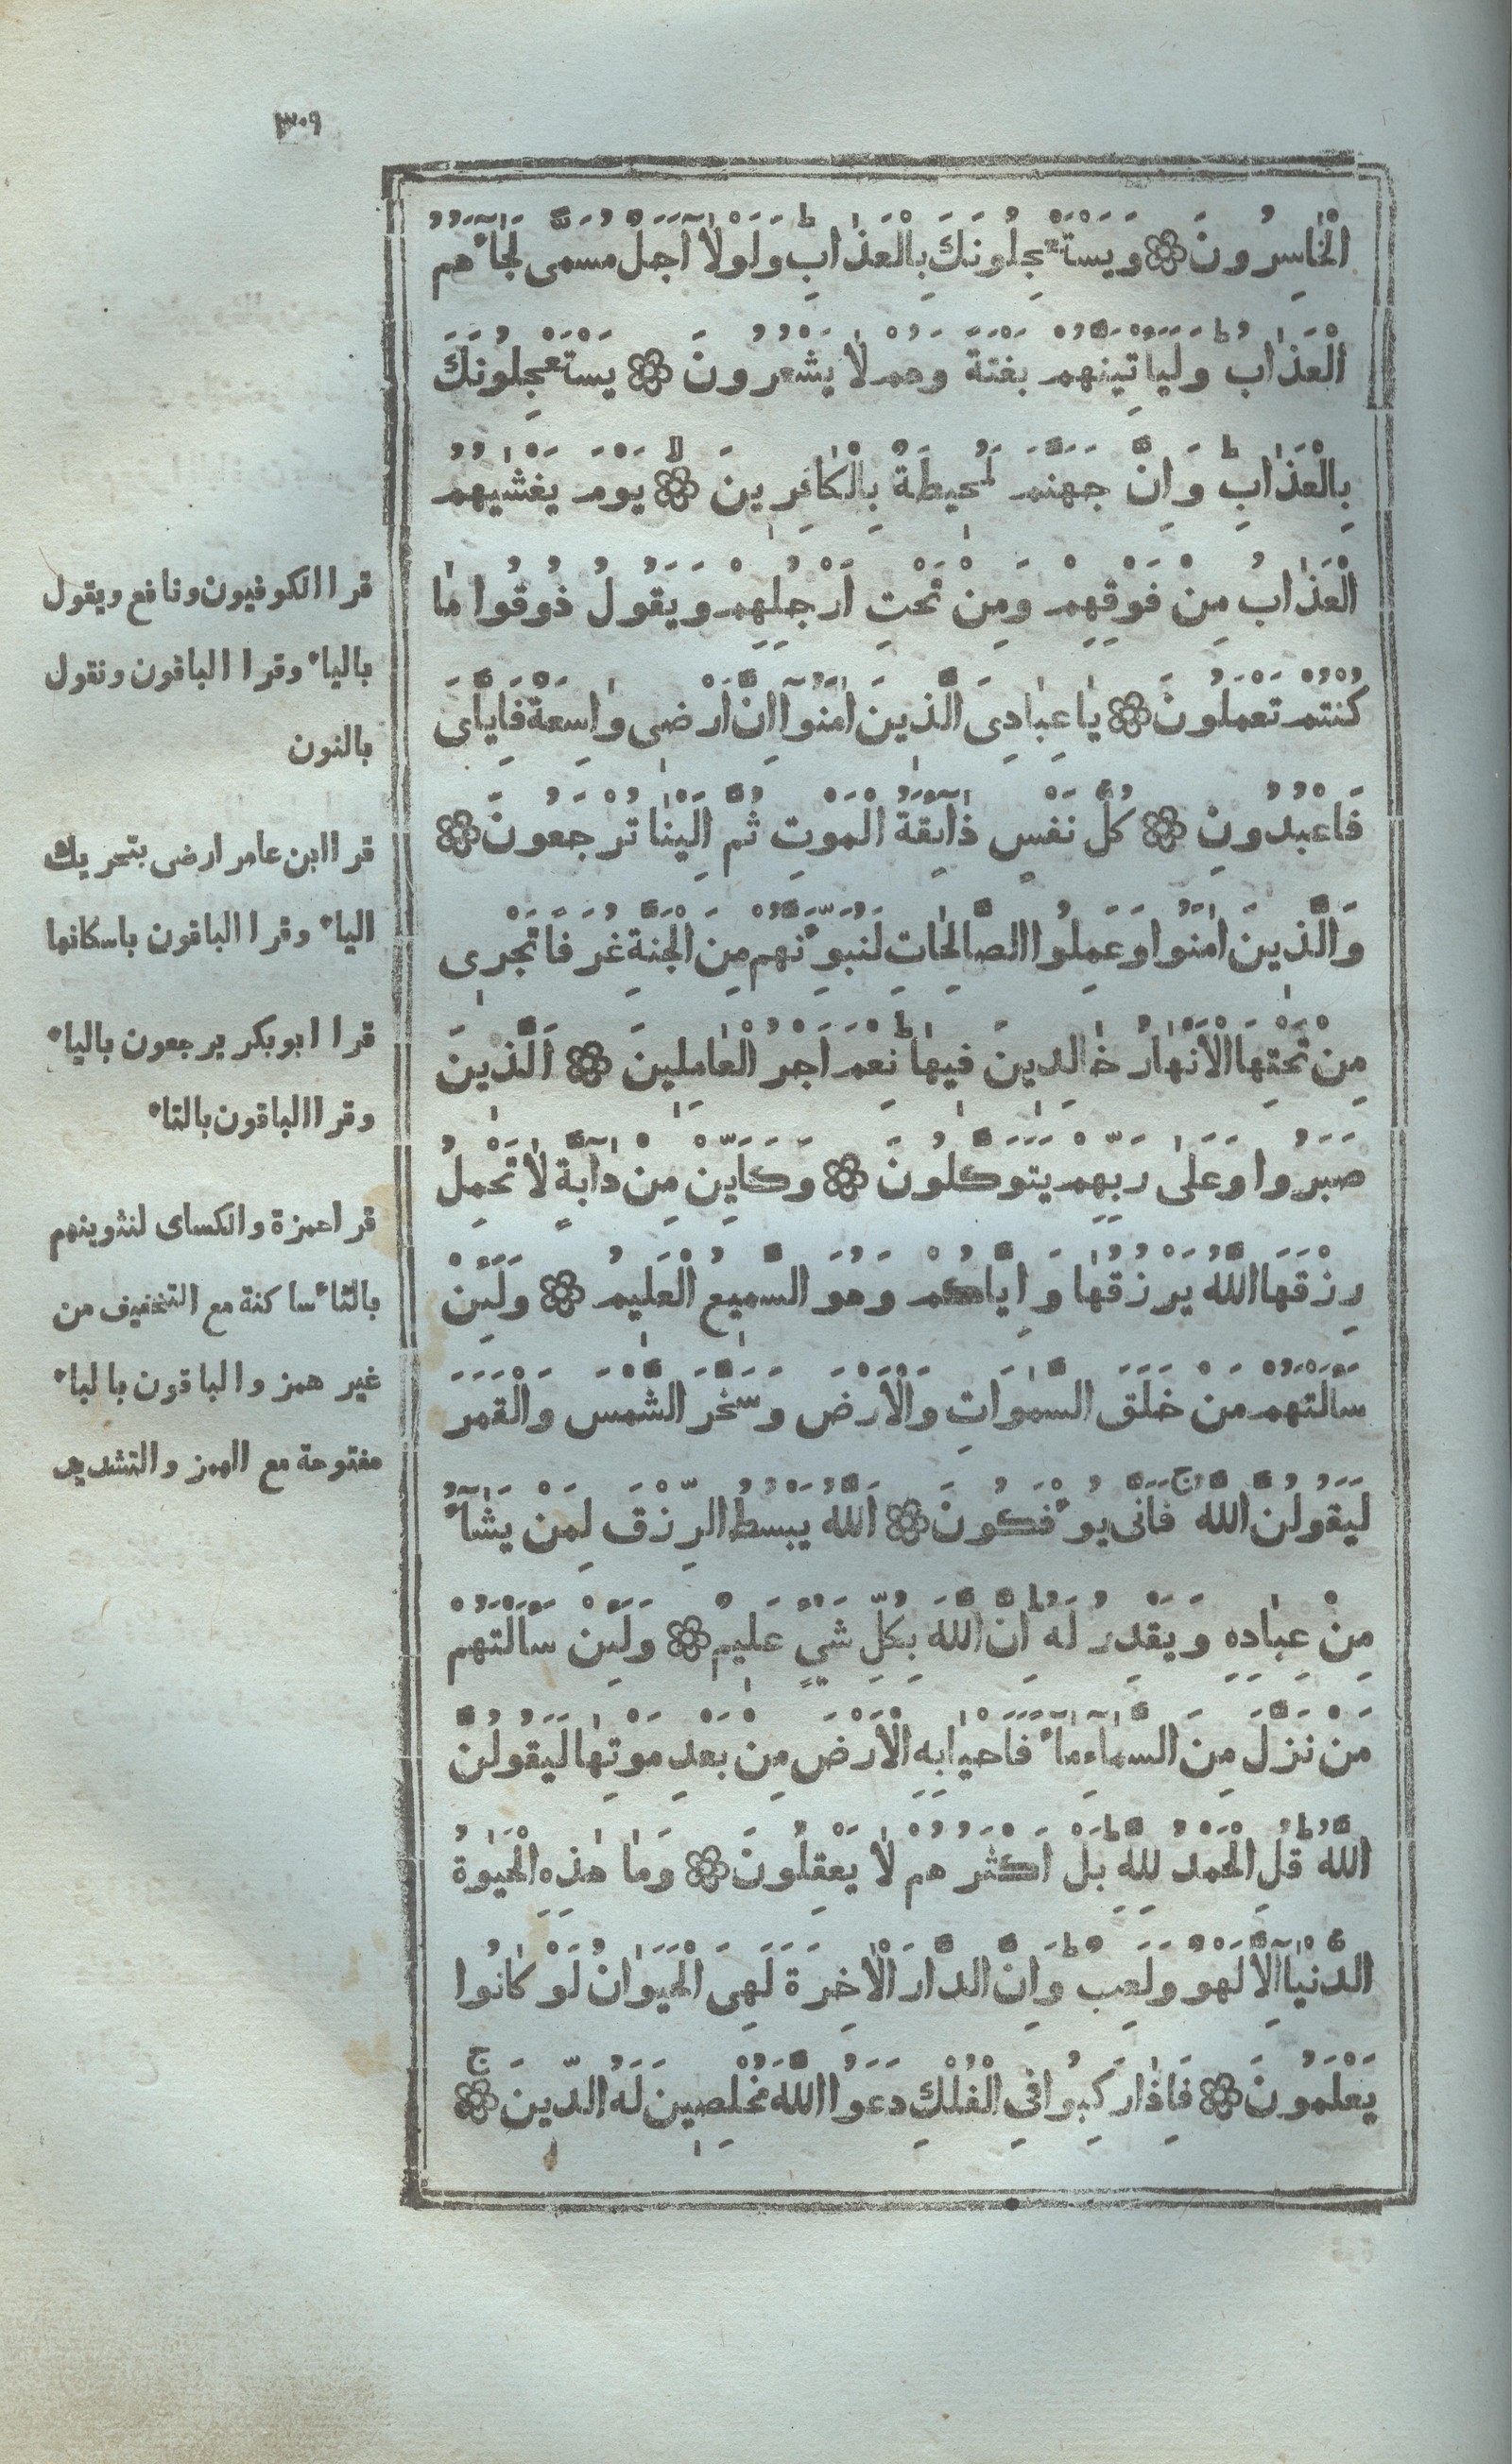 ٣٠٩
الْخَاسِرُونَ ۞ وَيَسْتَعْجِلُونَكَ بِالْعَذَابِ ط وَلَوْلَآ اَجَلٌ مُسَمًّى لَجَآءَهُمُ
الْعَذَابُ ط وَلَيَأْتِيَنَّهُمْ بَغْتَةً وَهُمْ لَا يَشْعُرُونَ ۞ يَسْتَعْجِلُونَكَ
بِالْعَذَابِ ط وَاِنَّ جَهَنَّمَ لَمُحِيطَةٌ بِالْكَافِرِينَ لا ۞ يَوْمَ يَغْشٰيهُمُ
الْعَذَابُ مِنْ فَوْقِهِمْ وَمِنْ تَحْتِ اَرْجُلِهِمْ وَيَقُولُ ذُوقُوا مَا
كُنْتُمْ تَعْمَلُونَ ۞ يَا عِبَادِىَ الَّذِينَ اٰمَنُوآ اِنَّ اَرْضِى وَاسِعَةٌ فَاِيَّاىَ
فَاعْبُدُونِ ۞ كُلُّ نَفْسٍ ذَآئِقَةُ الْمَوْتِ ثُمَّ اِلَيْنَا تُرْجَعُونَ ۞
وَالَّذِينَ اٰمَنُوا وَعَمِلُوا الصَّالِحَاتِ لَنُبَوِّئَنَّهُمْ مِنَ الْجَنَّةِ غُرَفًا تَجْرِى
مِنْ تَحْتِهَا الْاَنْهَارُ خَالِدِينَ فِيهَا ط نِعْمَ اَجْرُ الْعَامِلِينَ ۞ اَلَّذِينَ
صَبَرُوا وَعَلٰى رَبِّهِمْ يَتَوَكَّلُونَ ۞ وَكَاَيِّنْ مِنْ دَآبَّةٍ لَا تَحْمِلُ
رِزْقَهَا اَللّٰهُ يَرْزُقُهَا وَاِيَّاكُمْ وَهُوَ السَّمِيعُ الْعَلِيمُ ۞ وَلَئِنْ
سَاَلْتَهُمْ مَنْ خَلَقَ السَّمٰوَاتِ وَالْاَرْضَ وَسَخَّرَ الشَّمْسَ وَالْقَمَرَ
لَيَقُولُنَّ اللّٰهُ ج فَاَنّٰى يُؤْفَكُونَ ۞ اَللّٰهُ يَبْسُطُ الرِّزْقَ لِمَنْ يَشَآءُ
مِنْ عِبَادِهِ وَيَقْدِرُ لَهُ ط اِنَّ اللّٰهَ بِكُلِّ شَيْءٍ عَلِيمٌ ۞ وَلَئِنْ سَاَلْتَهُمْ
مَنْ نَزَّلَ مِنَ السَّمَآءِ مَآءً فَاَحْيَا بِهِ الْاَرْضَ مِنْ بَعْدِ مَوْتِهَا لَيَقُولُنَّ
اللّٰهُ ط قُلِ الْحَمْدُ لِلّٰهِ ط بَلْ اَكْثَرُهُمْ لَا يَعْقِلُونَ ۞ وَمَا هٰذِهِ الْحَيٰوةُ
الدُّنْيَآ اِلَّا لَهْوٌ وَلَعِبٌ ط وَاِنَّ الدَّارَ الْاٰخِرَةَ لَهِىَ الْحَيَوَانُ لَوْ كَانُوا
يَعْلَمُونَ ۞ فَاِذَا رَكِبُوا فِى الْفُلْكِ دَعَوُا اللّٰهَ مُخْلِصِينَ لَهُ الدِّينَ ج ۞
قرا الكوفيون ونافع ويقول
بالياء وقرا الباقون ونقول
بالنون
قرا ابن عامر ارضى بتحريك
الياء وقرا الباقون باسكانها
قرا ابوبكر يرجعون بالياء
وقرا الباقون بالتاء
قرا حمزة والكساى لنثوينهم
بالثاء ساكنة مع التخفيف من
غير همز والباقون بالباء
مفتوحة مع الهمز والتشديد